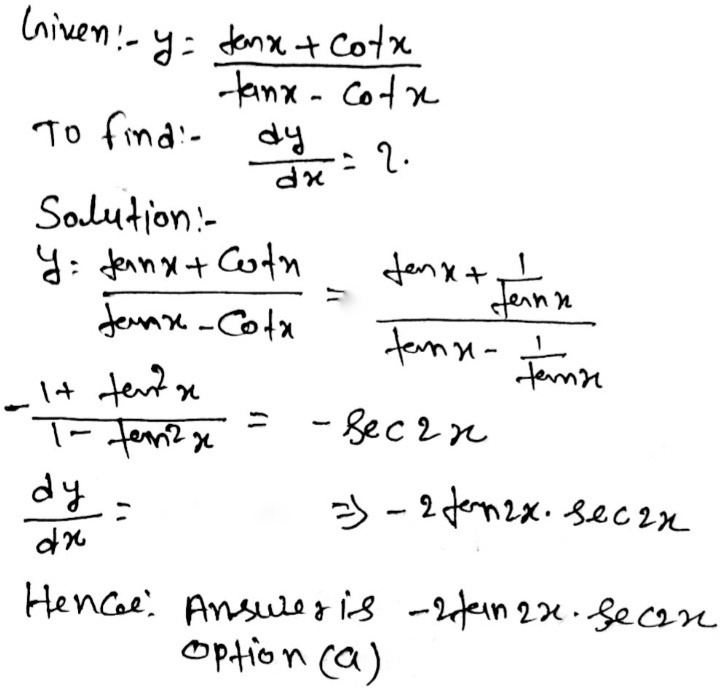 Given:- y = tanx + cotx / tanx - cotx
To find:- dy/dx = ?.
Solution:-
y = tanx + cotx / tanx - cotx = tanx + 1/tanx / tanx - 1/tanx
- 1 + tan² x / 1 - tan² x = - sec 2x
dy/dx = => - 2 tan2x. sec2x
Hence: Answer is -2tan 2x. sec2x
option (a)